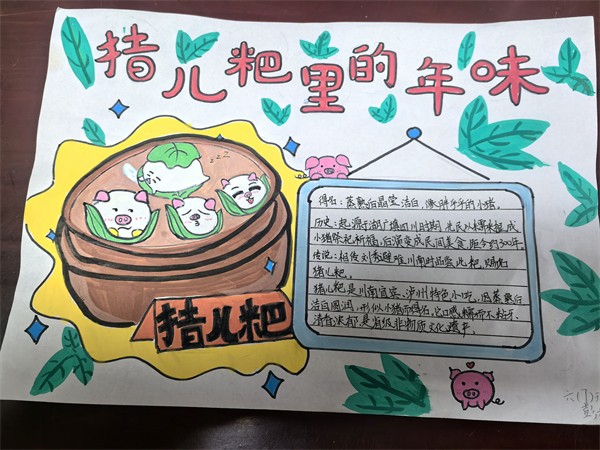 猪儿粑里的年味
zzz
得名：蒸熟后晶莹洁白，像胖乎乎的小猪。
历史：起源于湖广填四川时期，先民以糯米捏成
小猪祭祀祈福，后演变成民间美食，距今约300年。
传说：相传刘秀避难川南时品尝此粑，赐名
猪儿粑。
猪儿粑是川南宜宾、泸州特色小吃，因蒸熟后
洁白圆润，形似小猪而得名，它口感糯而不粘牙、
清香浓郁，是省级非物质文化遗产。
猪儿粑
六(7)